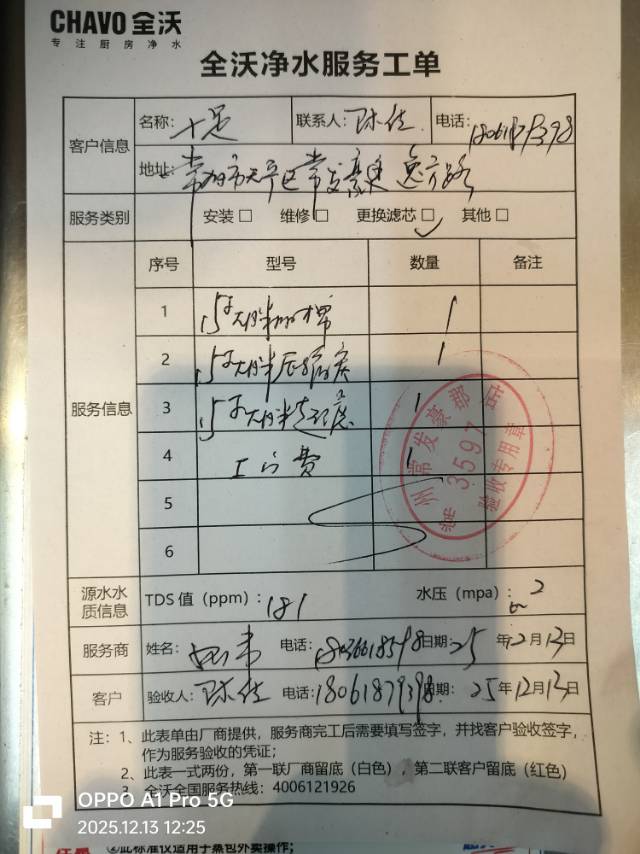 CHAVO 全沃
专注厨房净水
全沃净水服务工单
客户信息
名称：十足
联系人：陈佳
电话：18061879398
地址：常州市天宁区常发豪庭
服务类别
安装□ 维修□ 更换滤芯□✓ 其他□
服务信息
序号 型号 数量 备注
1 1
2 1
3 1
4 工时费 1
5
6
州常发豪都店
3597
验收专用章
源水水质信息
TDS 值（ppm）：181
水压（mpa）：2
服务商
姓名：
电话：
日期：25年12月13日
客户
验收人：陈佳
电话：18061879398
日期：25年12月13日
注：1、此表单由厂商提供，服务商完工后需要填写签字，并找客户验收签字，
作为服务验收的凭证；
2、此表一式两份，第一联厂商留底（白色），第二联客户留底（红色）
3、全沃全国服务热线：4006121926
OPPO A1 Pro 5G
2025.12.13 12:25
②此标准仅适用于蒸包外卖操作；